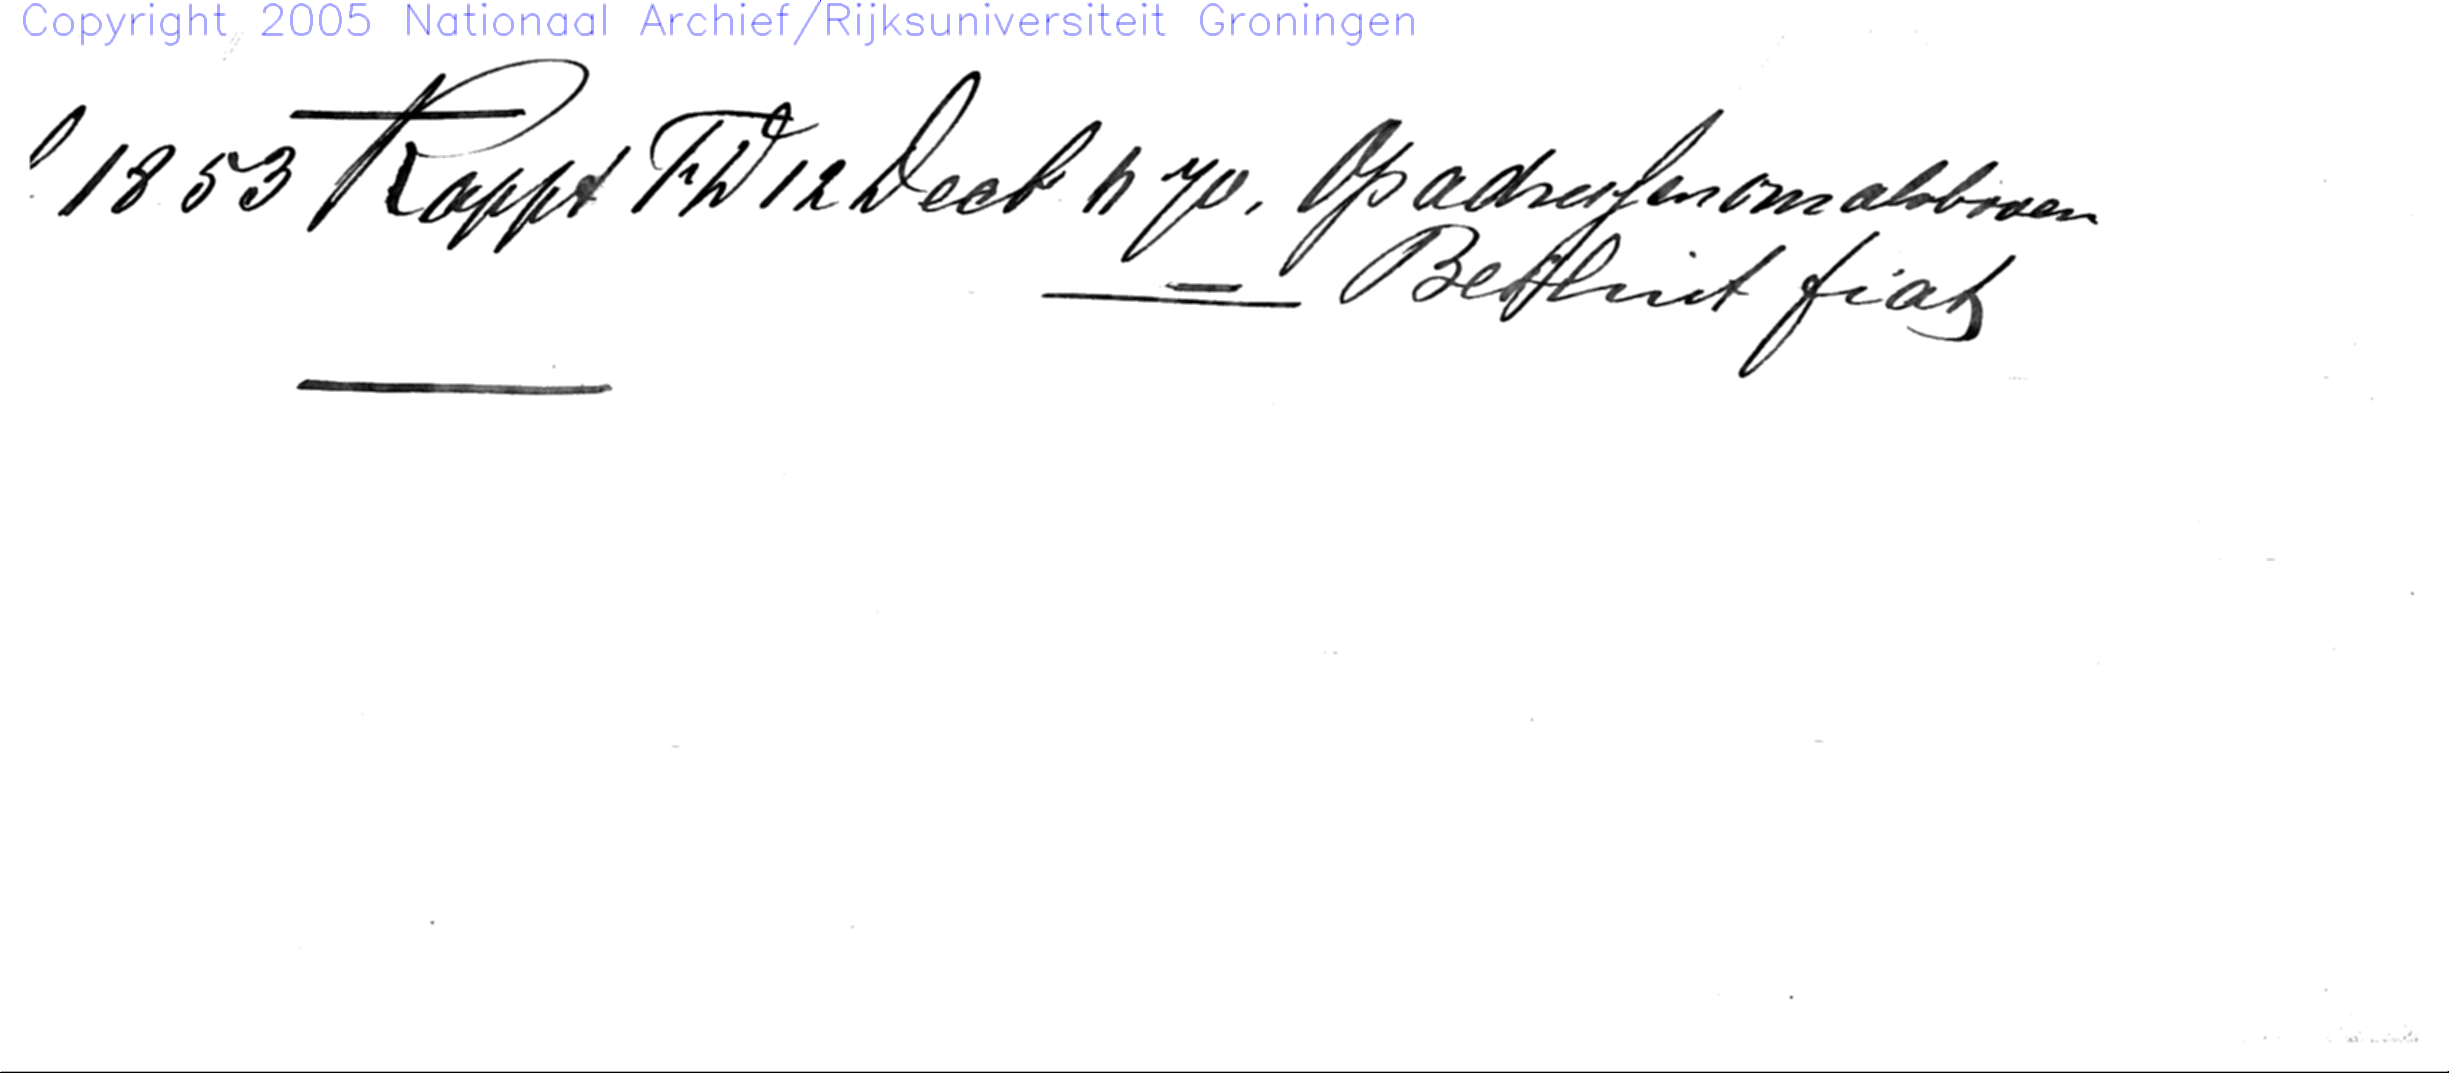 Copyright 2005 Nationaal Archief/Rijksuniversiteit Groningen
1853 Rappt FD 12 Dect h 70, Op adressen om alsboven
Besluit fiat